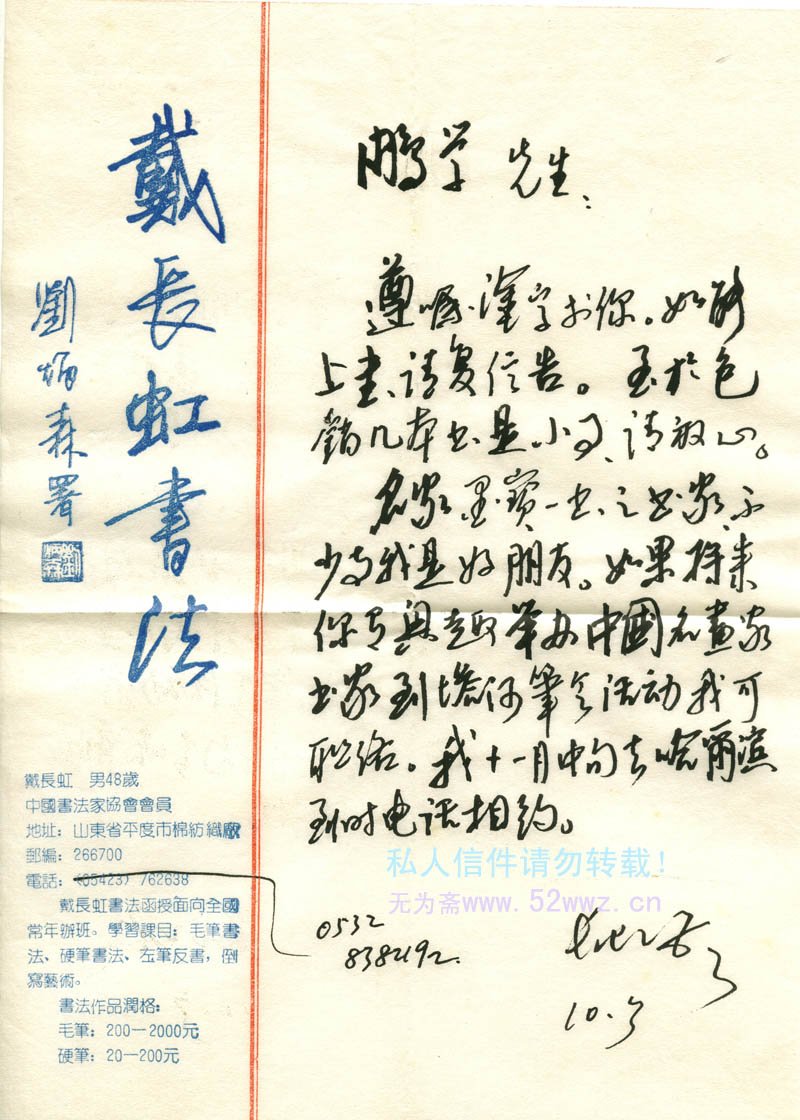 戴長虹書法
劉炳森署
戴長虹 男48歲
中國書法家協會會員
地址：山東省平度市棉紡織廠
郵編：266700
電話：(05423) 762638
戴長虹書法函授面向全國
常年辦班。學習課目：毛筆書
法、硬筆書法、左筆反書，倒
寫藝術。
書法作品潤格：
毛筆：200—2000元
硬筆：20—200元
鹏学 先生：
遵嘱，字於你。如
上书，请复信告。至於包
錯几本书是小事，请放心。
名家墨寶一书之书家，不
少与我是好朋友。如果将来
你有興趣举办中國名画家
书家到塔河筆会活动我可
联络。我十一月中旬去哈爾滨
到时电话相约。
0532
838492.
10.3
私人信件请勿转载！
无为斋www.52wwz.cn